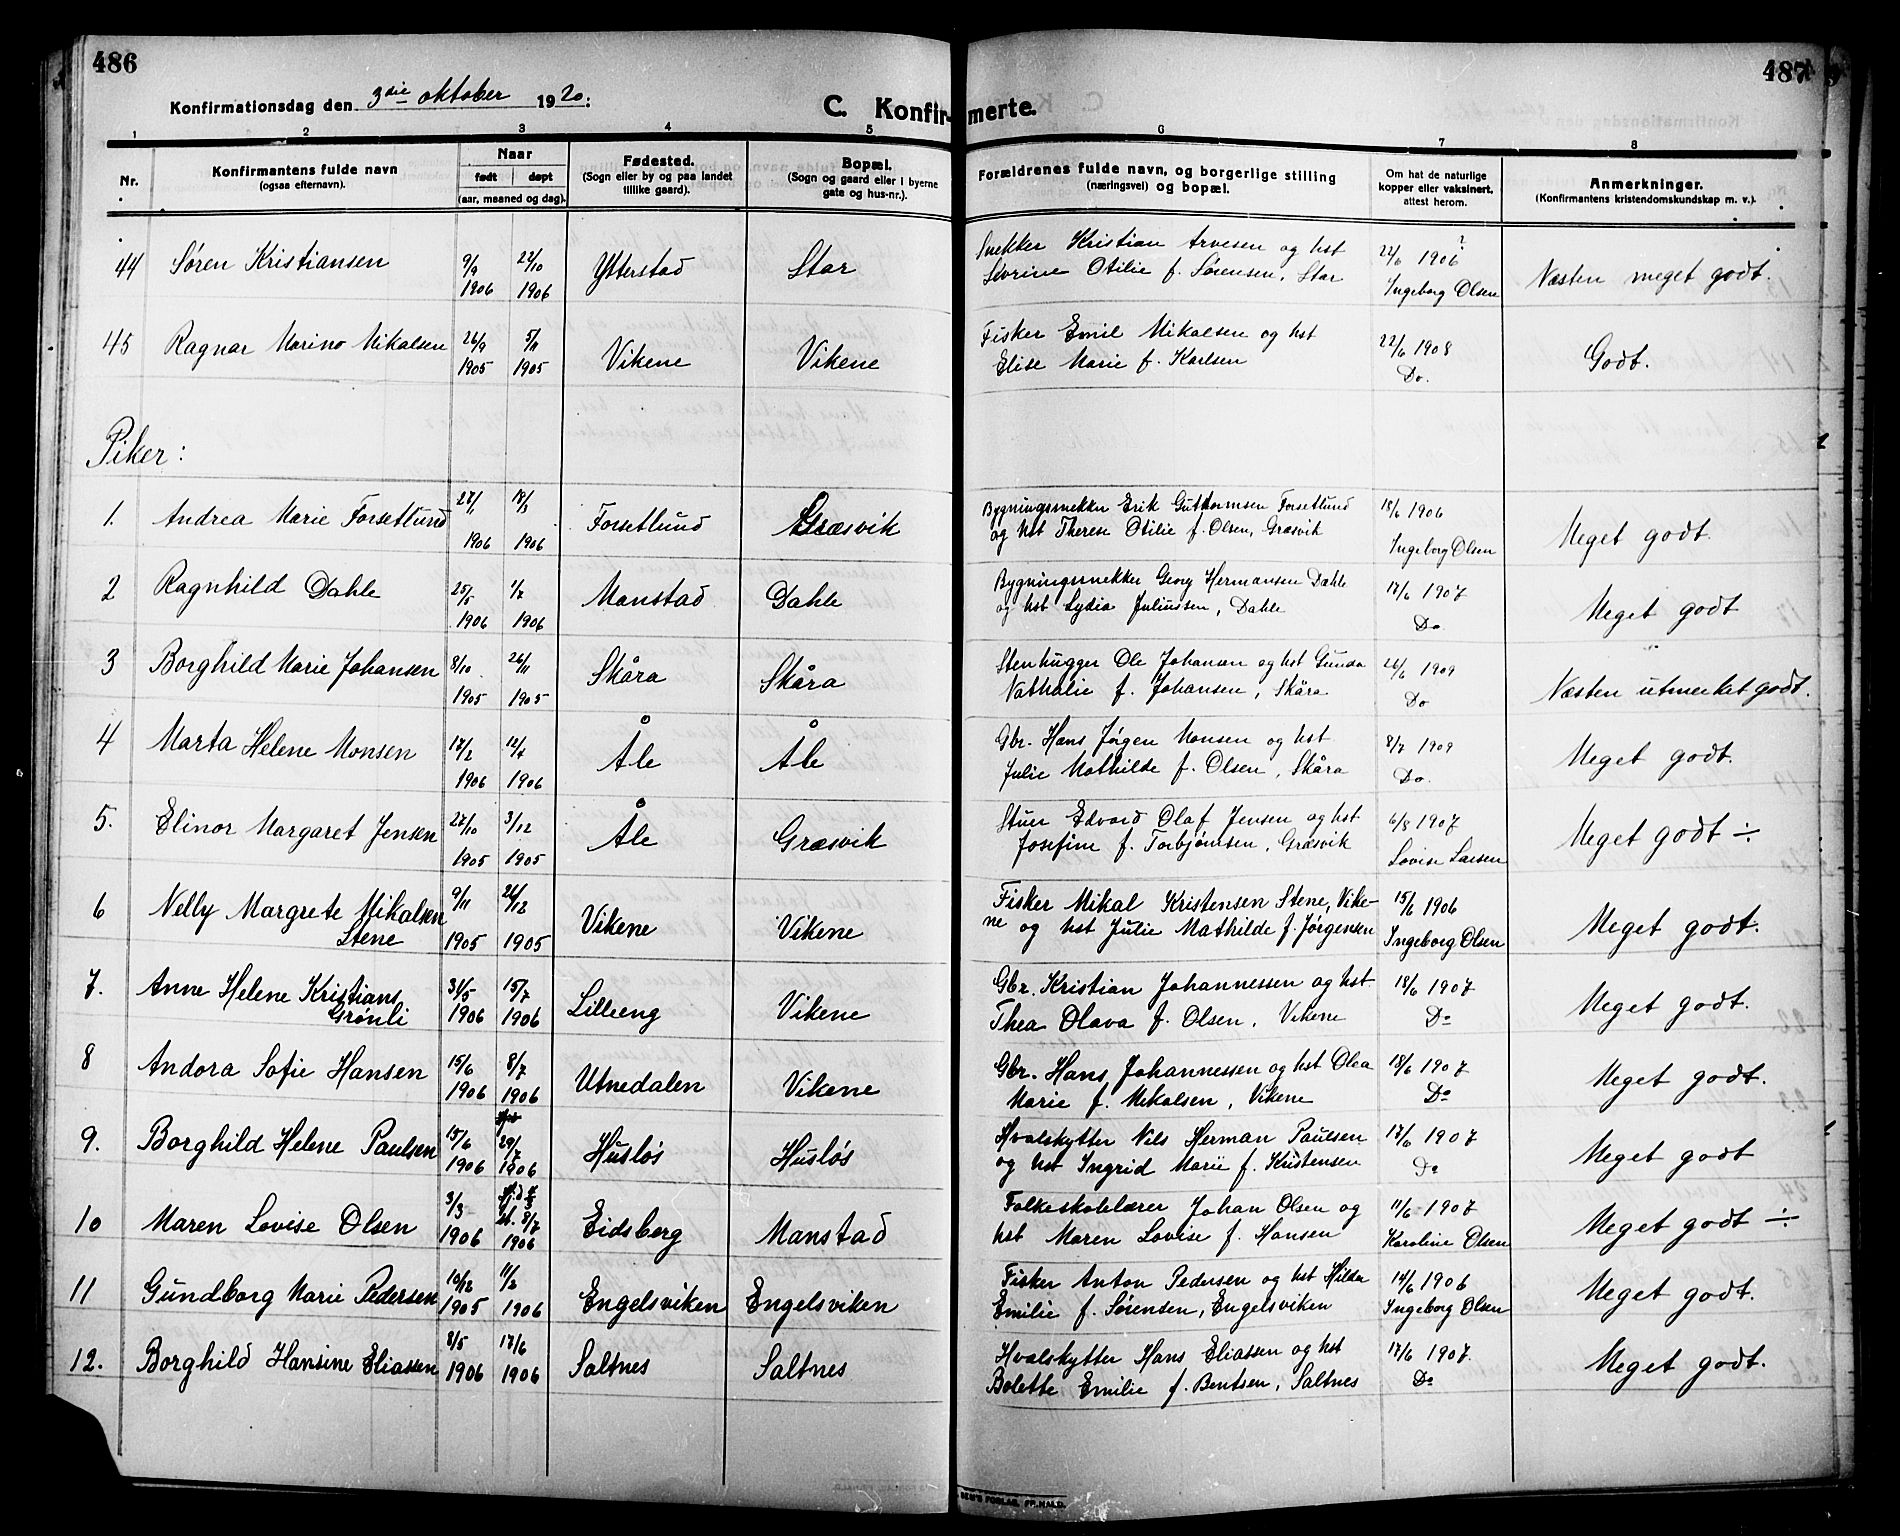 486
487
Konfirmationsdag den 3die oktober 1920:
C. Konfirmerte.
1 2 3 4 5 6 7 8
Nr.
Konfirmantens fulde navn
(ogsaa efternavn).
Naar
født døpt
(aar, maaned og dag).
Fødested.
(Sogn eller by og paa landet
tillike gaard).
Bopæl.
(Sogn og gaard eller i byerne
gate og hus-nr.).
Forældrenes fulde navn, og borgerlige stilling
(næringsvei) og bopæl.
Om hat de naturlige
kopper eller vaksinert,
attest herom.
Anmerkninger.
(Konfirmantens kristendomskundskap m. v.).
44 Søren Kristiansen 9/9 1906 22/10 1906 Ytterstad Star
Snekker Kristian Arvesen og hst
Severine Otilie f. Sørensen, Star
22/6 1906 ?
Ingeborg Olsen
Næsten meget godt.
45 Ragnar Marino Mikalsen 26/9 1905 5/11 1905 Vikene Vikene
Fisker Emil Mikalsen og hst
Elise Marie f. Karlsen
22/6 1908
Do.
Godt.
Piker:
1. Andrea Marie Forsetlund 27/1 1906 18/3 1906 Forsetlund Græsvik
Bygningssnekker Erik Guttormsen Forsetlund
og hst Therese Otilie f. Olsen, Græsvik
18/6 1906
Ingeborg Olsen
Meget godt.
2 Ragnhild Dahle 25/5 1906 1/7 1906 Manstad Dahle
Bygningssnekker Georg Hermansen Dahle
og hst Lydia Juliussen, Dahle
17/6 1907
Do
Meget godt
3 Borghild Marie Johansen 8/10 1905 26/11 1905 Skåra Skåra
Stenhugger Ole Johansen og hst Gunda
Nathalie f. Johansen, Skåra
26/6 1909
Do
Næsten utmerket godt.
4 Marta Helene Monsen 17/2 1906 12/4 1906 Åle Åle
Gbr. Hans Jørgen Monsen og hst
Julie Mathilde f. Olsen, Skåra
8/7 1909
Do.
Meget godt.
5. Elinor Margaret Jensen 27/10 1905 3/12 1905 Åle Græsvik
Stuer Edvard Olaf Jensen og hst
Josefine f. Torbjørnsen, Græsvik
6/8 1907
Lovise Larsen
Meget godt ÷
6 Nelly Margrete Mikalsen
Stene
9/11 1905 26/12 1905 Vikene Vikene
Fisker Mikal Kristensen Stene, Vike-
ne og hst Julie Mathilde f. Jörgensen
15/6 1906
Ingeborg Olsen
Meget godt.
7. Anne Helene Kristians
Grønli
31/5 1906 15/7 1906 Lilleeng Vikene
Gbr. Kristian Johannessen og hst
Thea Olava f. Olsen, Vikene
18/6 1907
Do
Meget godt.
8 Andora Sofie Hansen 15/6 1906 8/7 1906 Utnedalen Vikene
Gbr. Hans Johannessen og hst Olea
Marie f. Mikalsen, Vikene
18/6 1907
Do
Meget godt.
9. Borghild Helene Paulsen 15/6 1906 29/7 1906 Husløs Husløs
Hvalskytter Nils Herman Paulsen
og hst Ingrid Marie f. Kristensen
17/6 1907
Do
Meget godt
10 Maren Lovise Olsen 3/3 1906 st. 8/7 1906 Eidsberg Manstad
Folkeskolelærer Johan Olsen og
hst Maren Lovise f. Hansen
11/6 1907
Karoline Olsen
Meget godt ÷
11 Gundborg Marie Pedersen 10/12 1905 11/2 1906 Engelsviken Engelsviken
Fisker Anton Pedersen og hst Hilda
Emilie f. Sørensen, Engelsviken
14/6 1906
Ingeborg Olsen
Meget godt.
12. Borghild Hansine Eliassen 8/5 1906 17/6 1906 Saltnes Saltnes
Hvalskytter Hans Eliassen og hst
Bolette Emilie f. Bentsen, Saltnes
17/6 1907.
Do
Meget godt.